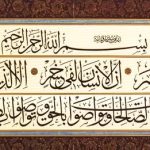 بسم الله الرحمن الرحيم
إن الإنسان لفى خسر إلا
الصالحات وتواصوا بالحق وتواصوا